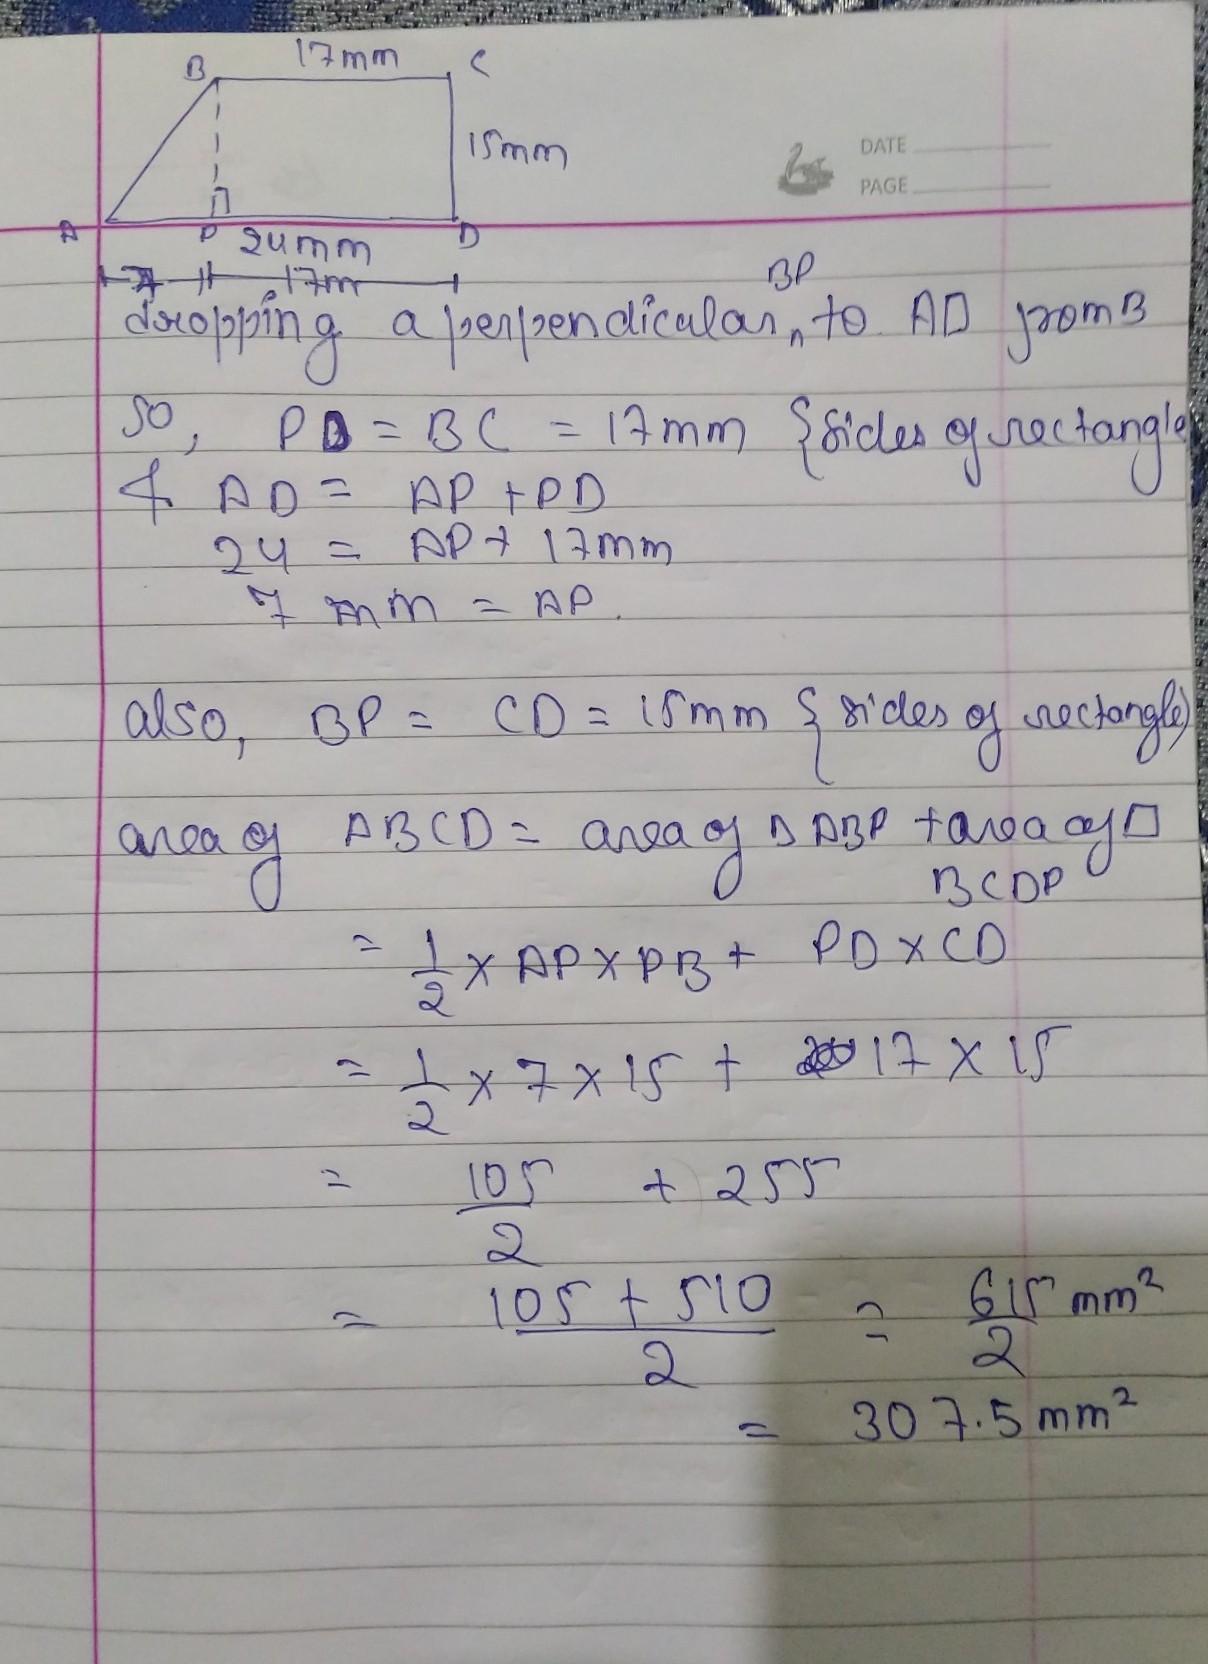 17mm
B C
15mm
DATE
PAGE
A P D
24mm
7 17m
BP
dropping a perpendicular, to AD from B
so, PD = BC = 17mm {sides of rectangle
& AD = AP + PD
24 = AP + 17mm
7 mm = AP.
also, BP = CD = 15mm { sides of rectangle}
area of ABCD = area of Δ ABP + area of □
BCDP
= 1/2 × AP × PB + PD × CD
= 1/2 × 7 × 15 + 17 × 15
= 105/2 + 255
= 105 + 510/2 = 615/2 mm²
= 307.5 mm²